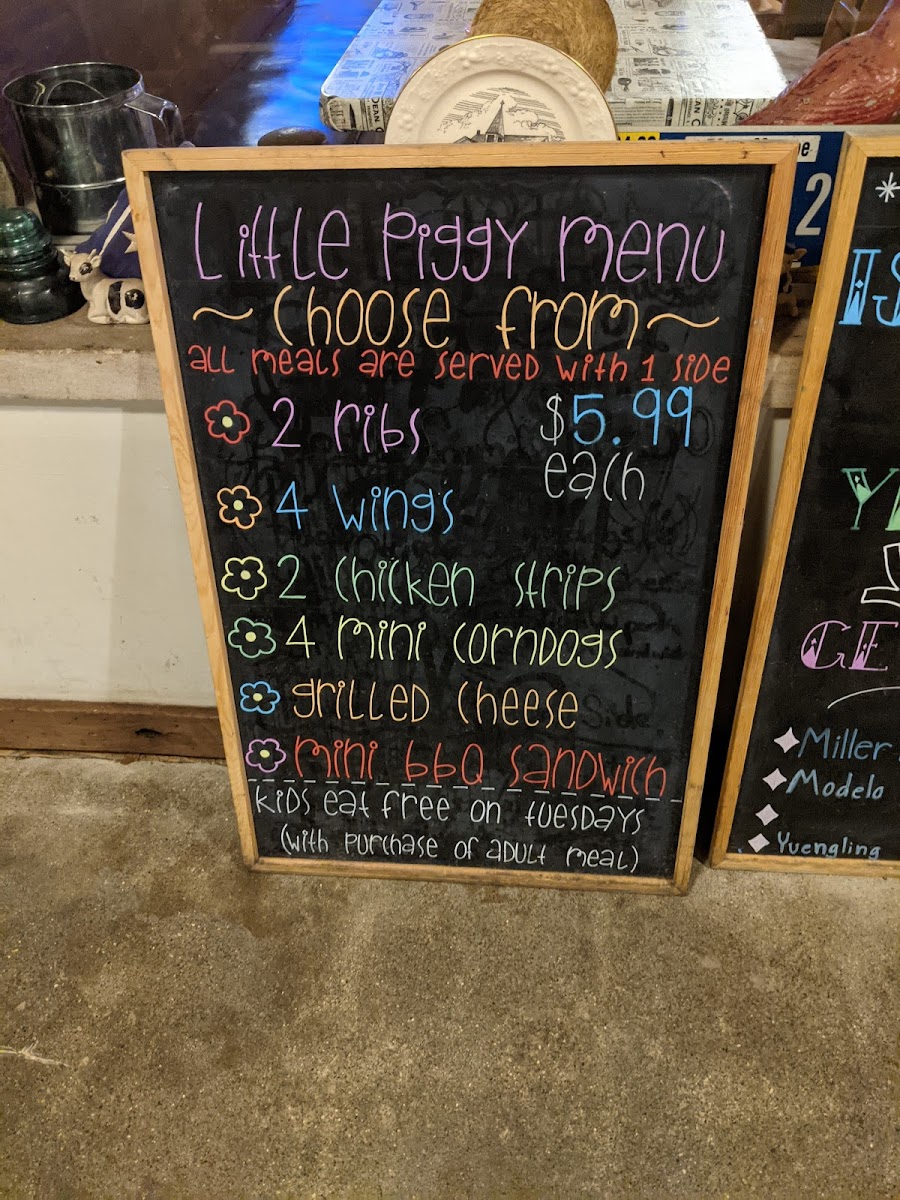 Little Piggy Menu
~ Choose from ~
all meals are served with 1 side
2 ribs $5.99
each
4 wings
2 chicken strips
4 mini corndogs
grilled cheese
mini bbQ sandwich
kids eat free on tuesdays
(with purchase of adult meal)
2
Miller
Modelo
Yuengling